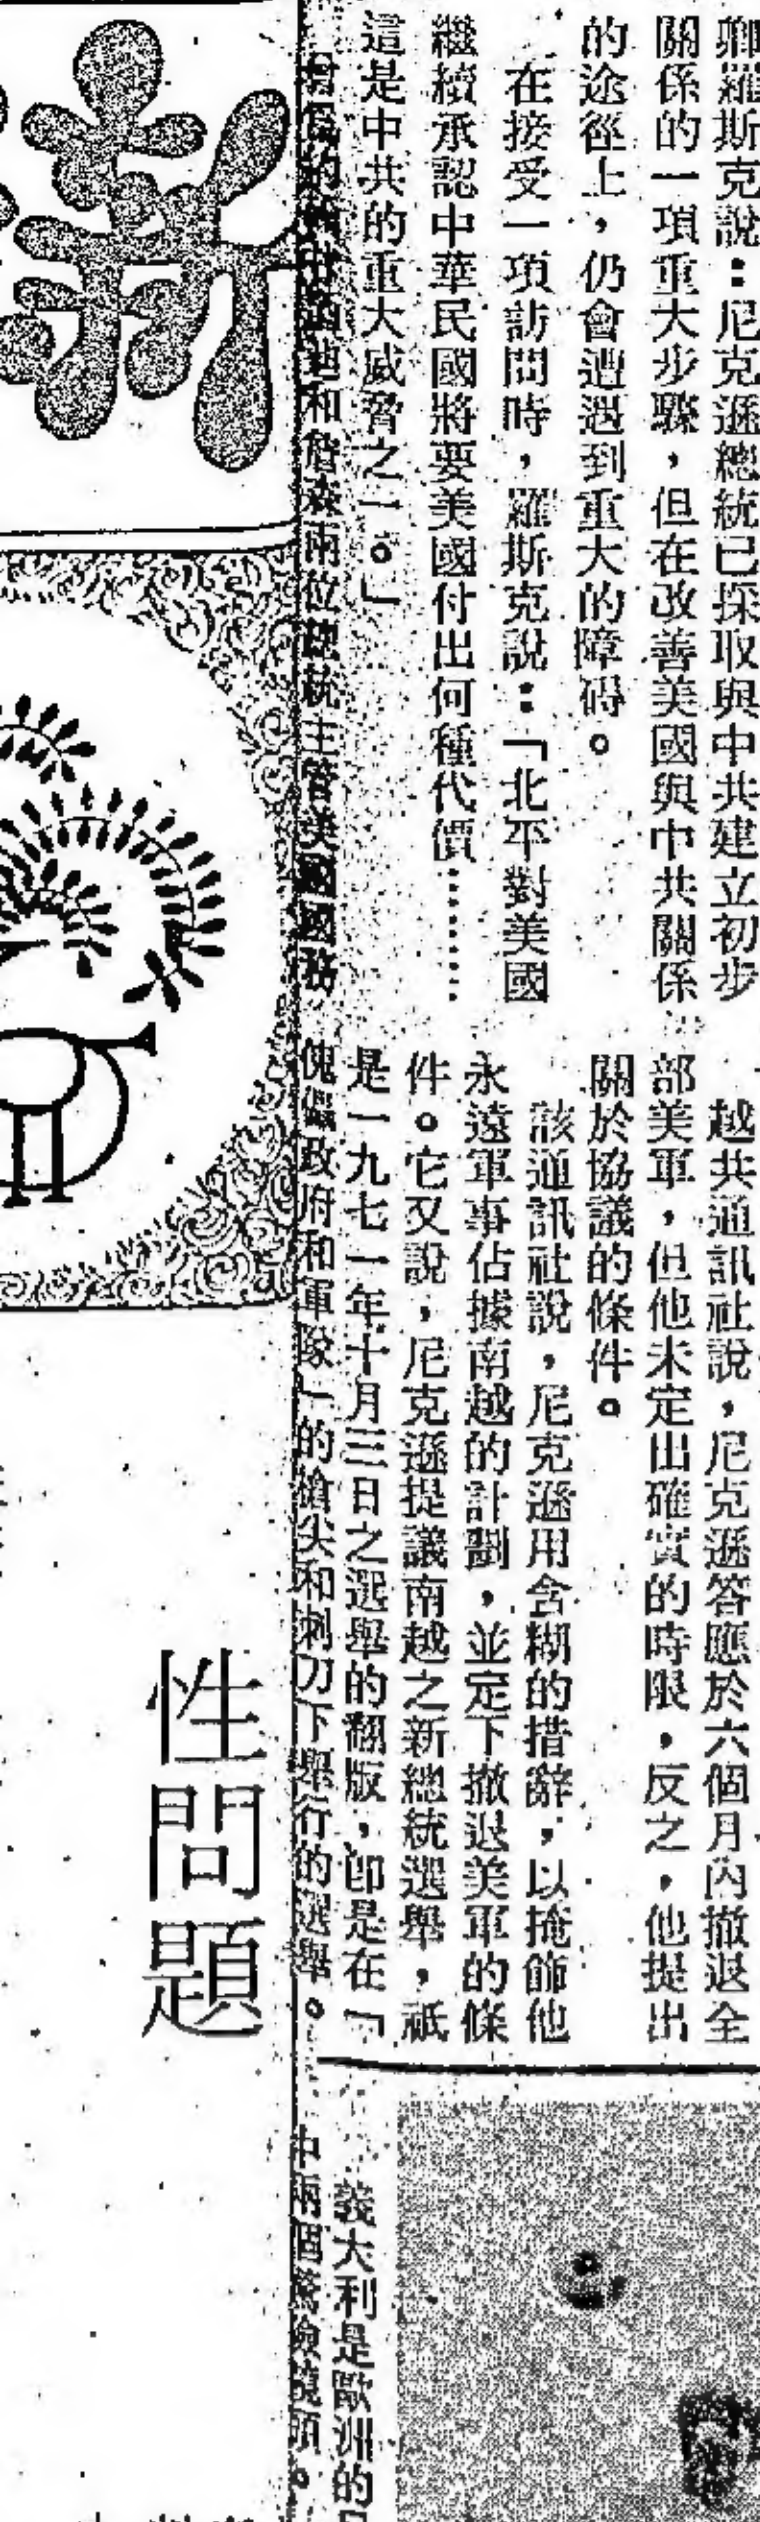 卿羅斯克說：尼克遜總統已採取與中共建立初步
關係的一項重大步驟，但在改善美國與中共關係
的途徑上，仍會遭遇到重大的障碍。
在接受一項訪問時，羅斯克說：「北平對美國
繼續承認中華民國將要美國付出何種代價………
這是中共的重大威脅之一。」
和詹森兩位總統主管美國國務
越共通訊社說，尼克遜答應於六個月內撤退全
部美軍，但他未定出確實的時限，反之，他提出
關於協議的條件。
該通訊社說，尼克遜用含糊的措辭，以掩飾他
永遠軍事佔據南越的計劃，並定下撤退美軍的條
件。它又說，尼克遜提議南越之新總統選舉，祇
是一九七一年十月三日之選舉的翻版，卽是在「
傀儡政府和軍隊」的槍尖和刺刀下舉行的選舉。
義大利是歐洲的
中兩個驚險鏡頭。
性問題